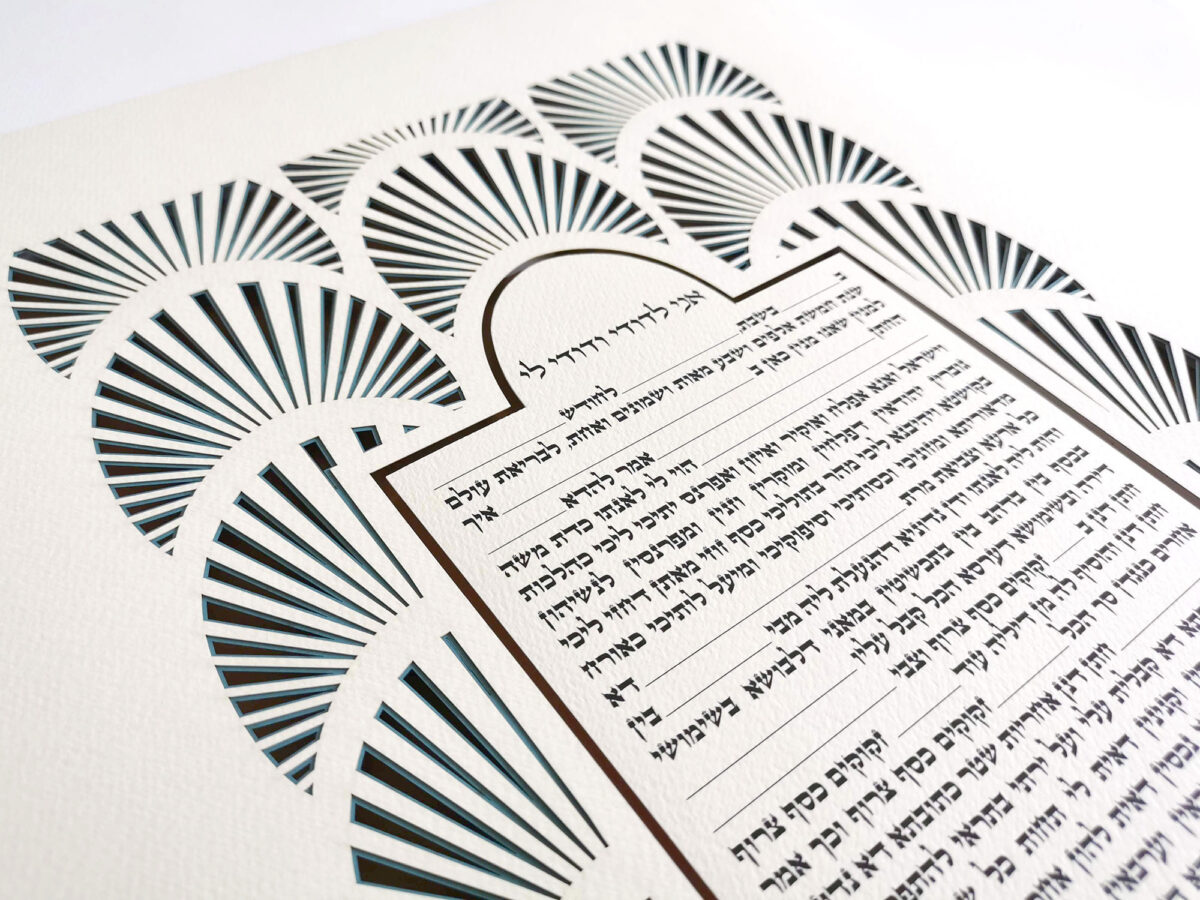 אני לדודי ודודי לי
ב בשבת לחודש
שנת חמשת אלפים ושבע מאות ושמונים ואחת, לבריאת עולם
למנין שאנו מנין כאן ב איך
החתן אמר להדא
הוי לי לאנתו כדת משה
וישראל ואנא אפלח ואוקיר ואיזון ואפרנס יתיכי ליכי כהלכות
גוברין יהודאין דפלחין ומוקרין וזנין ומפרנסין לנשיהון
בקושטא ויהיבנא ליכי מהר בתוליכי כסף זוזי מאתן דחזי ליכי
מדאוריתא ומזוניכי וכסותיכי וסיפוקיכי ומיעל לותיכי כאורח
כל ארעא וצביאת מרת דא
והות ליה לאנתו ודן נדוניא דהנעלת ליה מבי בין
בכסף בין בדהב בין בתכשיטין במאני דלבושא בשימושי
דירה ובשימושא דערסא הכל קבל עליו
חתן דנן ב זקוקים כסף צרוף וצבי
חתן דנן והוסיף לה מן דיליה עוד זקוקים כסף צרוף
אחרים כנגדן סך הכל זקוקים כסף צרוף וכך אמר
חתן דנן אחריות שטר כתובתא דא
דא קבלית עלי ועל ירתי בתראי
וקנינין דאית לי תחות כל
נכסין דאית להון
וערבאין